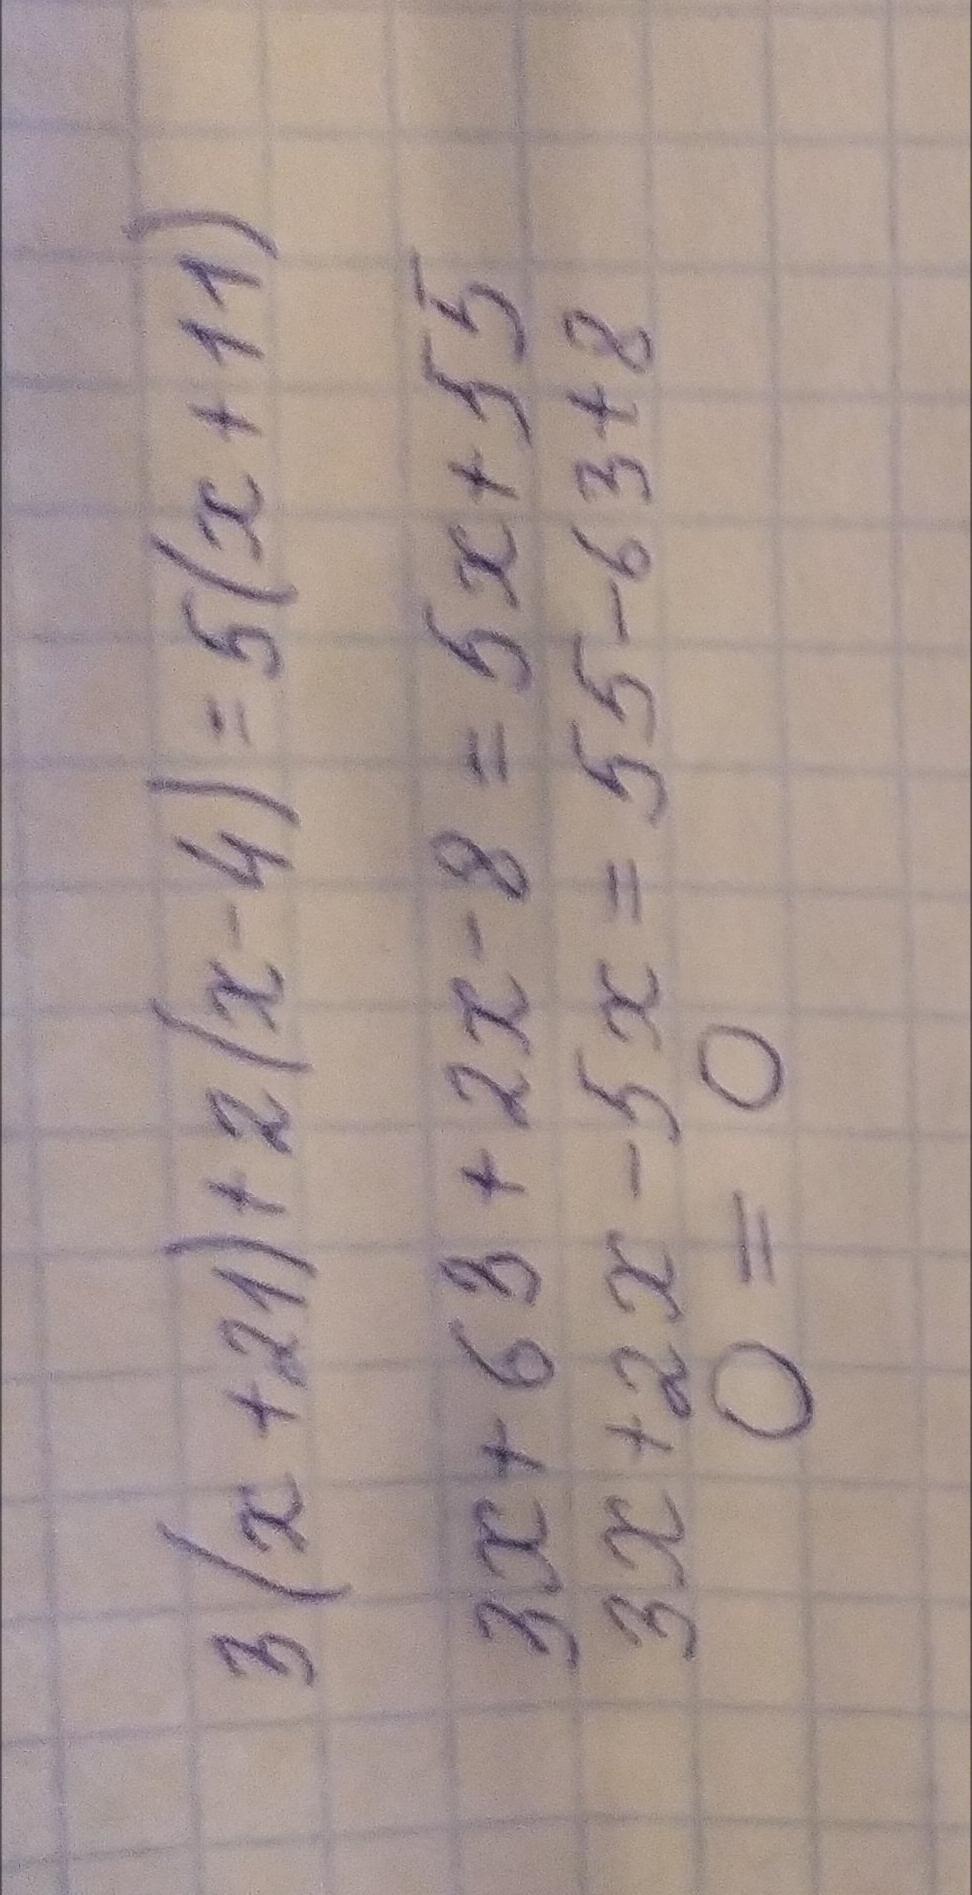 3(x+21)+2(x-4)=5(x+11)
3x+63+2x-8=5x+55
3x+2x-5x=55-63+8
0=0